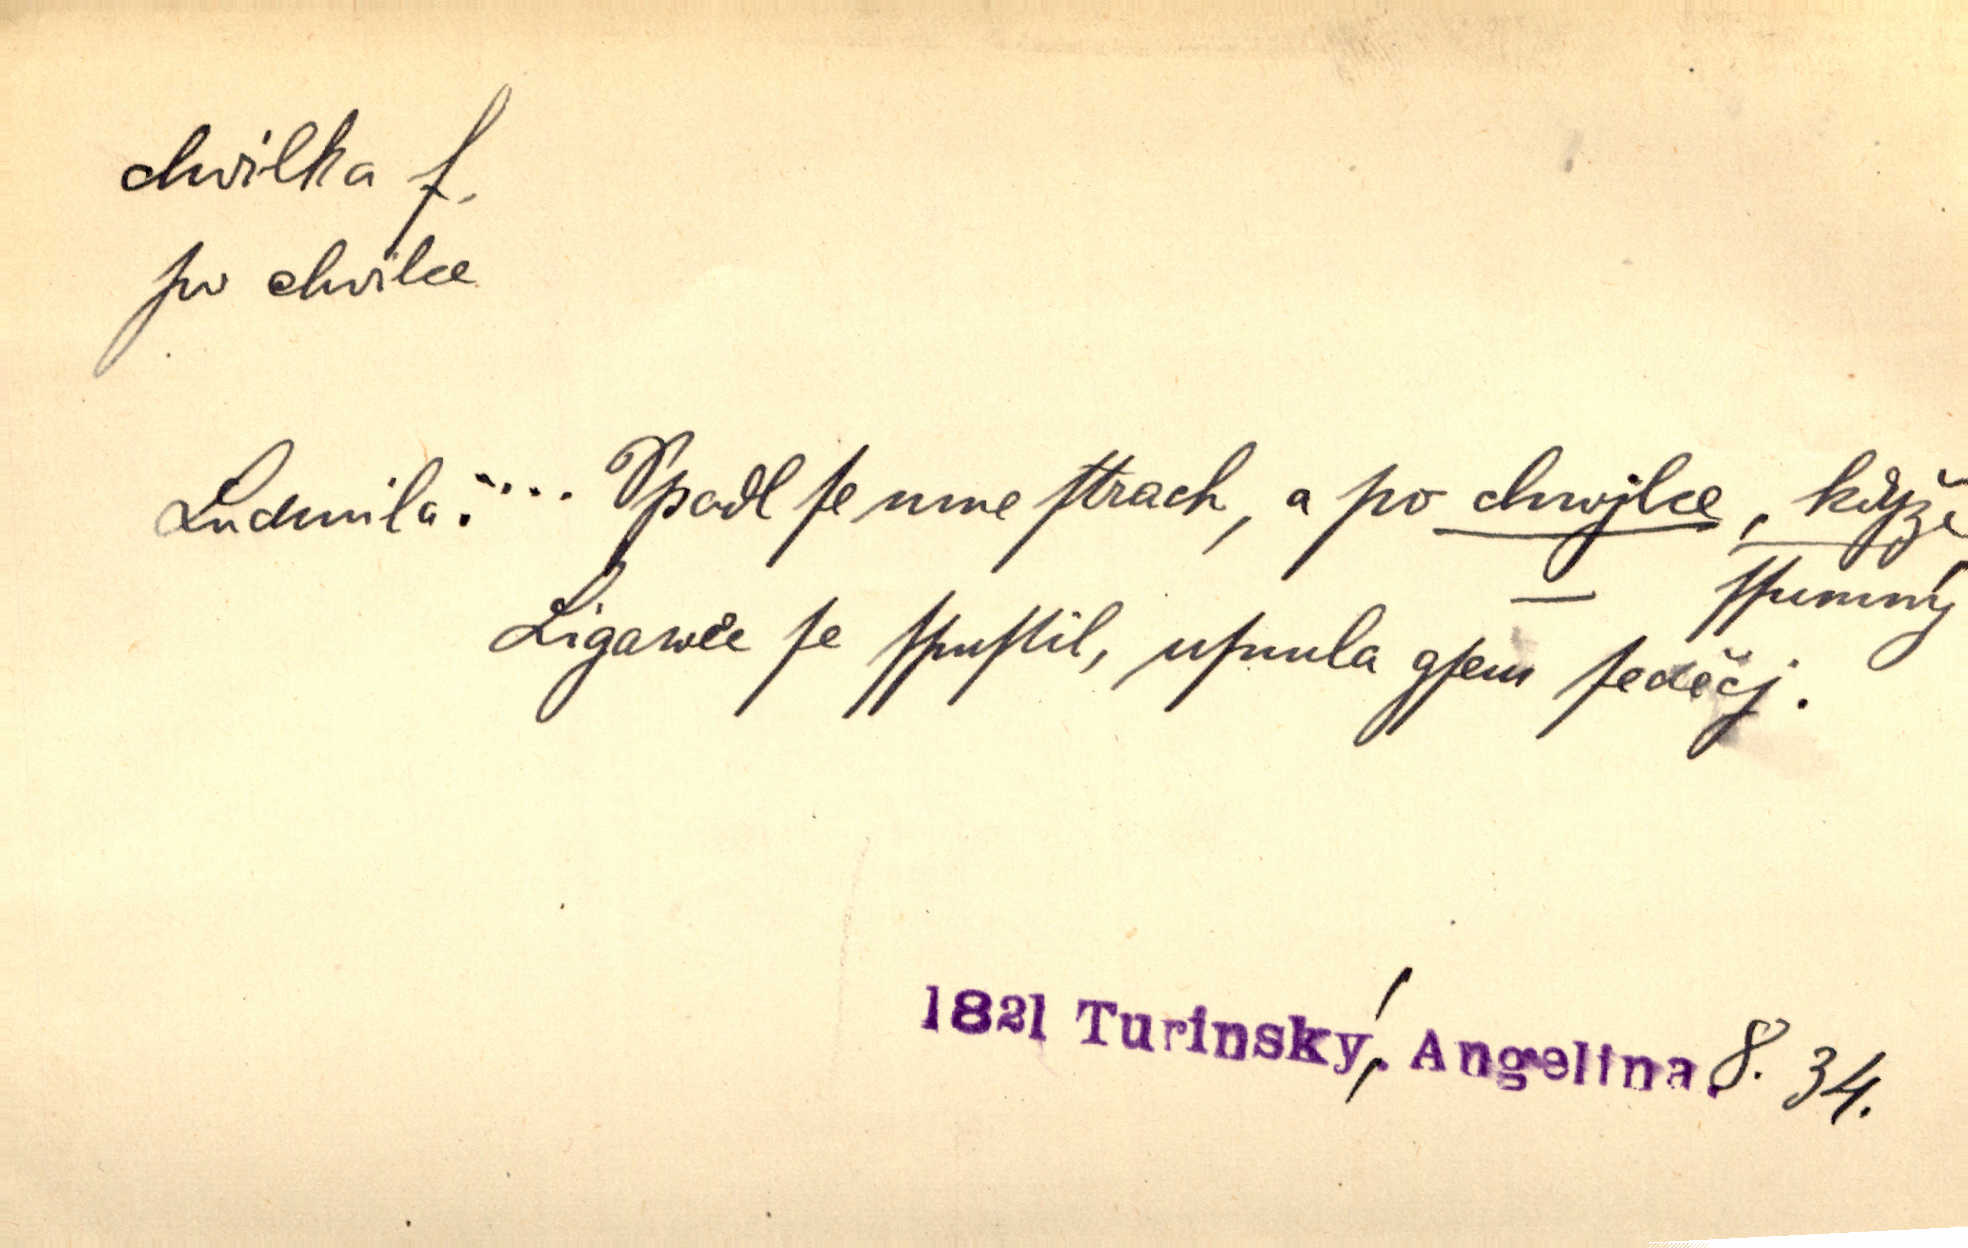 chvilka f.
po chvilce
Ludmila: .... Vpadl se mne strach, a po chwjlce, když
spumný
Ligawče se spustil, usnula gsem seděcj.
1821 Turinský. Angelina. 8. 34.